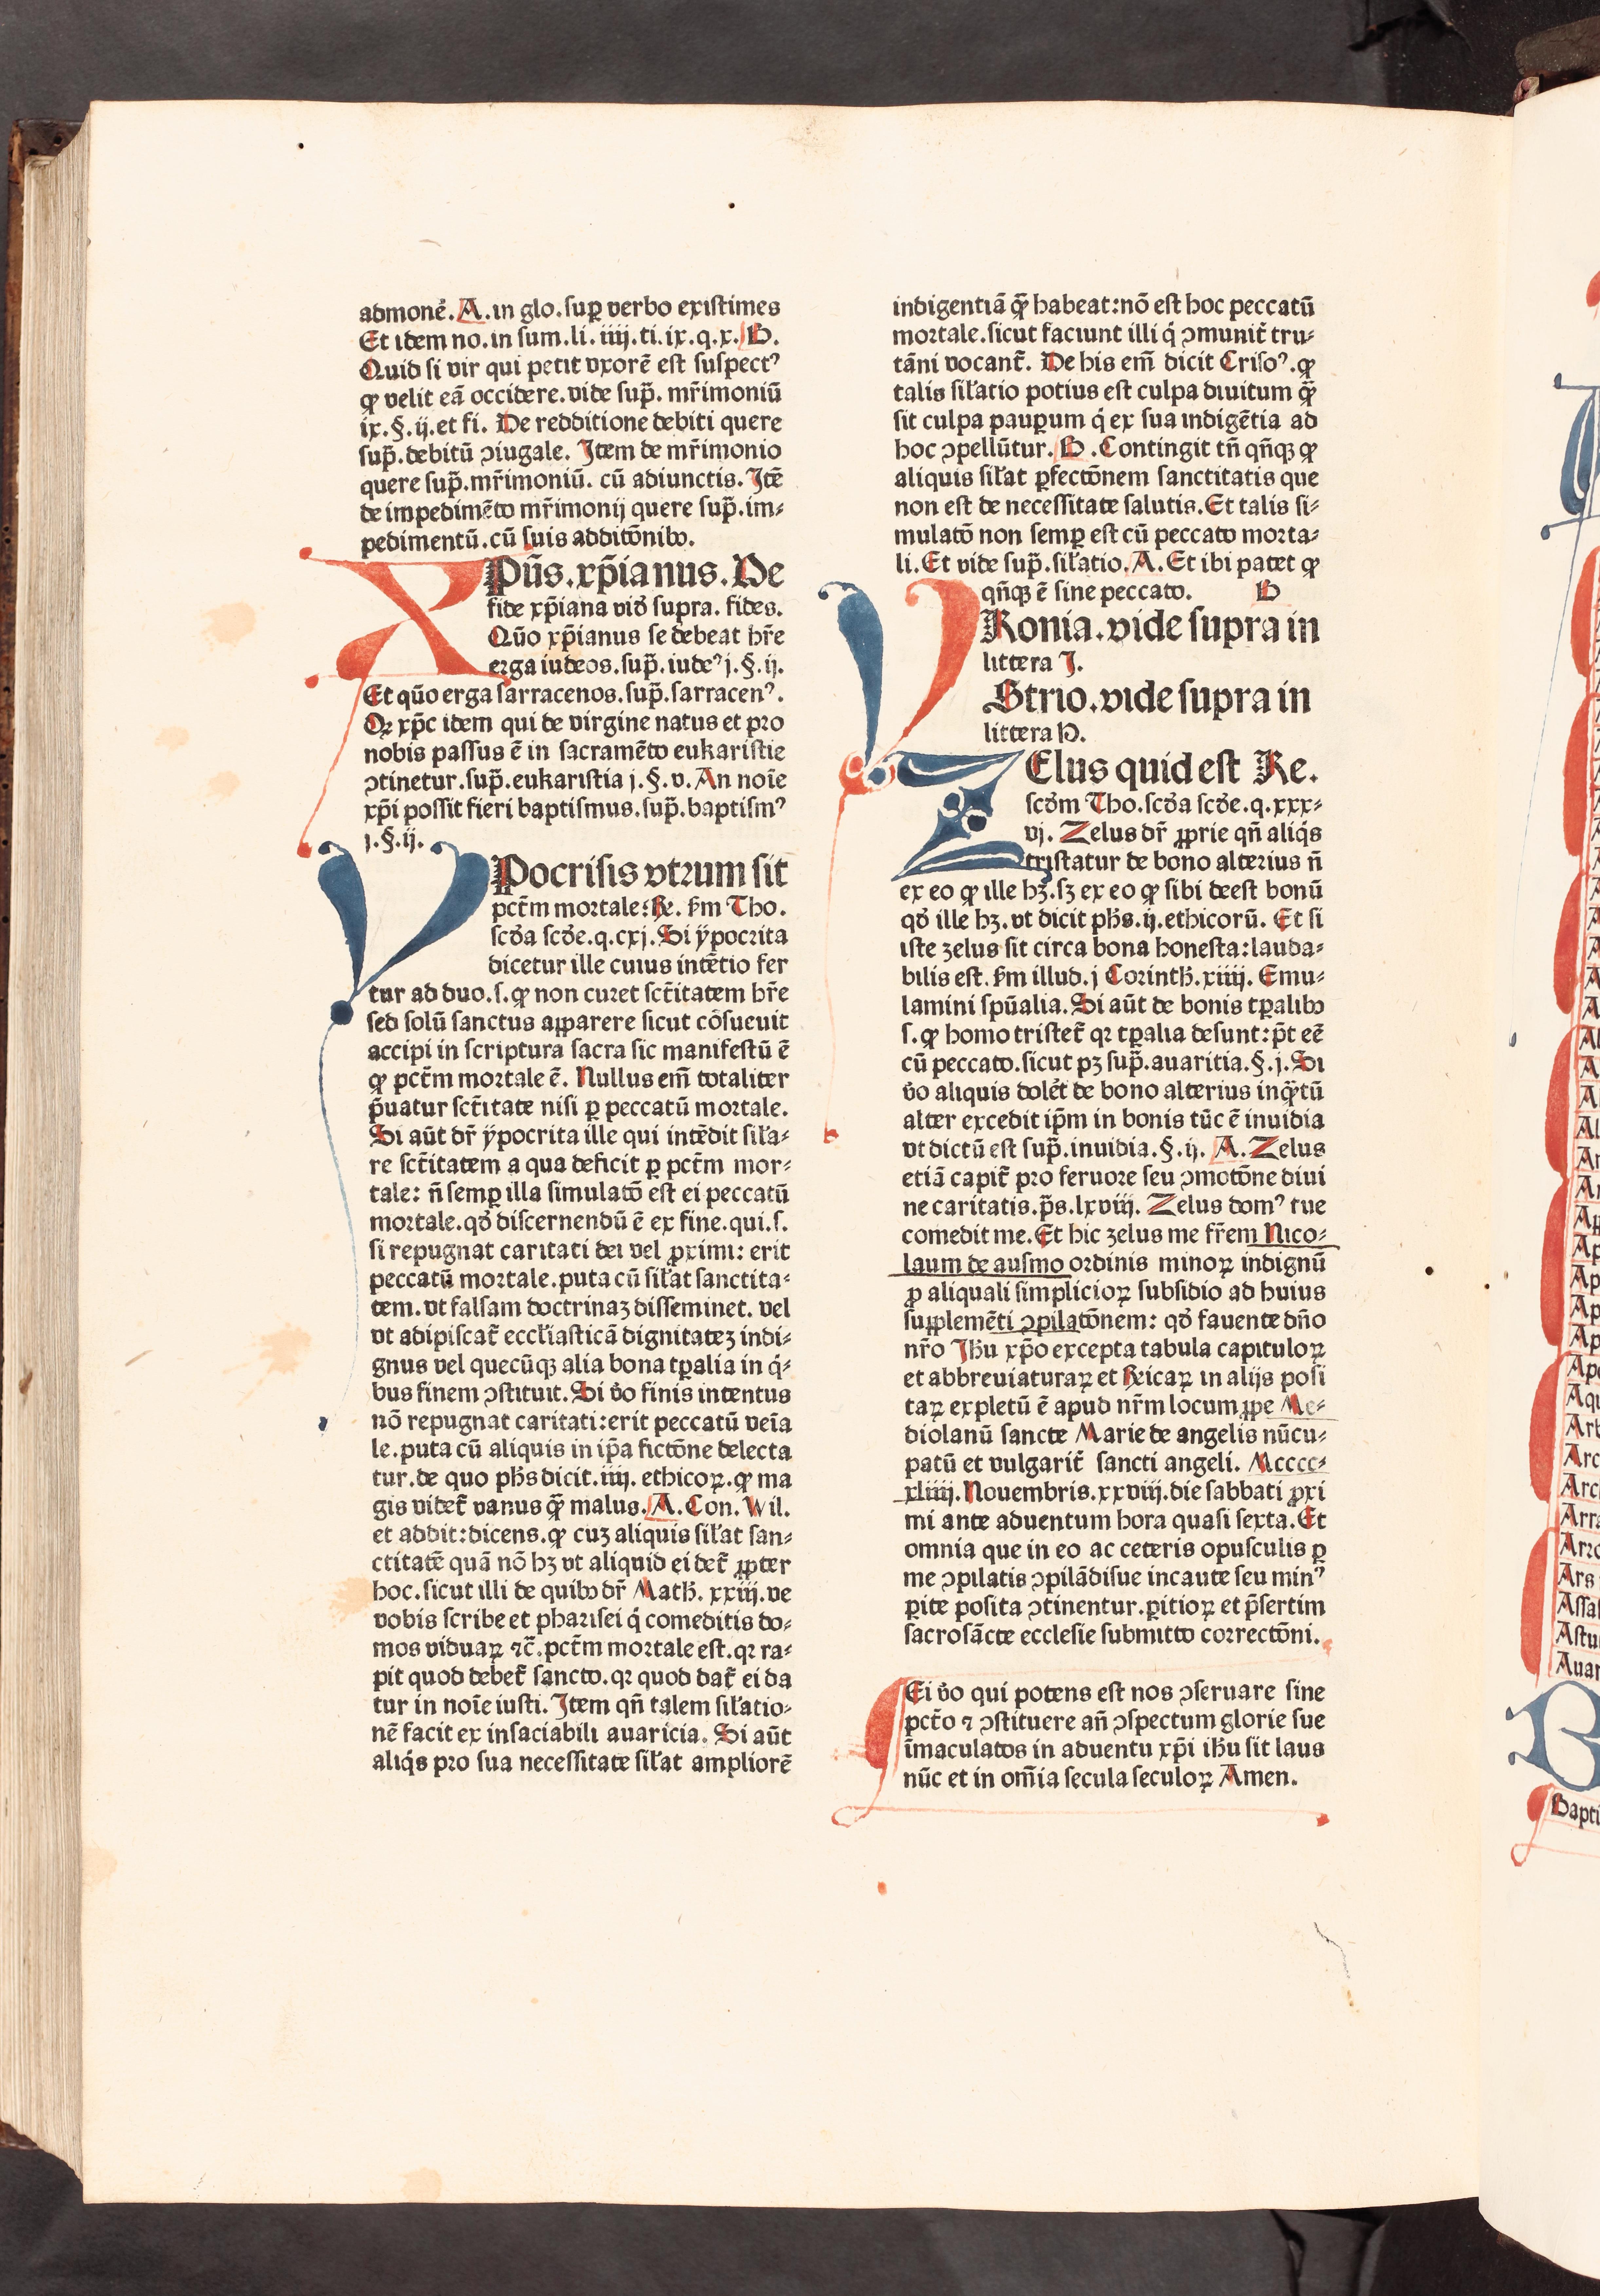 admonē. A. in glo. suꝑ verbo existimes
Et idem no. in sum. li. iiij. ti. ix. q. x. B.
Quid si vir qui petit vxorē est suspectꝰ
ꝙ velit eā occidere. vide sup̄. mr̄imoniū
ix. §. ij. et fi. De redditione debiti quere
sup̄. debitū ↄiugale. Item de mr̄imonio
quere sup̄. mr̄imoniū. cū adiunctis. Itē
de impedimēto mr̄imonij quere sup̄. im⸗
pedimentū. cū suis additōnibꝰ.
XPūs. xp̄ianus. De
fide xp̄iana vid̄ supra. fides.
Quō xp̄ianus se debeat hr̄e
erga iudeos. sup̄. iudeꝰ j. §. ij.
Et quō erga sarracenos. sup̄. sarracenꝰ.
Qꝛ xp̄c idem qui de virgine natus et pro
nobis passus ē in sacramēto eukaristie
ↄtinetur. sup̄. eukaristia j. §. v. An noīe
xp̄i possit fieri baptismus. sup̄. baptismꝰ
j. §. ij.
YPocrisis vtrum sit
pctm̄ mortale: Re. sm̄ Tho.
scd̄a scd̄e. q. cxj. Si ÿpocrita
dicetur ille cuius intētio fer
tur ad duo. s. ꝙ non curet sct̄itatem hr̄e
sed solū sanctus apparere sicut cōsueuit
accipi in scriptura sacra sic manifestū ē
ꝙ pctm̄ mortale ē. Nullus em̄ totaliter
p̄uatur sct̄itate nisi ꝑ peccatū mortale.
Si aūt dr̄ ÿpocrita ille qui intēdit sil̄a⸗
re sct̄itatem a qua deficit ꝑ pctm̄ mor⸗
tale: n̄ semꝑ illa simulatō est ei peccatū
mortale. qd̄ discernendū ē ex fine. qui. s.
si repugnat caritati dei vel ꝓximi: erit
peccatū mortale. puta cū sil̄at sanctita⸗
tem. vt falsam doctrinaꝫ disseminet. vel
vt adipiscat̄ eccl̄iasticā dignitateꝫ indi⸗
gnus vel quecūqꝫ alia bona tꝑalia in q̇⸗
bus finem ↄstituit. Si v̄o finis intentus
nō repugnat caritati: erit peccatū venīa
le. puta cū aliquis in ip̄a fictōne delecta
tur. de quo ph̄s dicit. iiij. ethicoꝝ. ꝙ ma
gis videt̄ vanus ꝙ̄ malus. A. Con. Wil.
et addit: dicens. ꝙ cuꝫ aliquis sil̄at san⸗
ctitatē quā nō hꝫ vt aliquid ei det̄ ꝓpter
hoc. sicut illi de quibꝰ dr̄ Math̄. xxiij. ve
vobis scribe et pharisei q̇ comeditis do⸗
mos viduaꝝ ⁊c̄. pctm̄ mortale est. qꝛ ra⸗
pit quod debet̄ sancto. qꝛ quod dat̄ ei da
tur in noīe iusti. Item qn̄ talem sil̄atio⸗
nē facit ex insaciabili auaricia. Si aūt
aliq̇s pro sua necessitate sil̄at ampliorē
indigentiā ꝙ̄ habeat: nō est hoc peccatū
mortale. sicut faciunt illi q̇ ↄmunit̄ tru⸗
tāni vocant̄. De his em̄ dicit Crisoꝰ. ꝙ
talis sil̄atio potius est culpa diuitum ꝙ̄
sit culpa pauꝑum q̇ ex sua indigētia ad
hoc ↄpellūtur. B. Contingit tn̄ qn̄qꝫ ꝙ
aliquis sil̄at ꝑfectōnem sanctitatis que
non est de necessitate salutis. Et talis si⸗
mulatō non semꝑ est cū peccato morta⸗
li. Et vide sup̄. sil̄atio. A. Et ibi patet ꝙ
qn̄qꝫ ē sine peccato. B
YRonia. vide supra in
littera I.
YStrio. vide supra in
littera H.
ZElus quid est Re.
scd̄m Tho. scd̄a scd̄e. q. xxx⸗
vj. Zelus dr̄ ꝓprie qn̄ aliq̇s
tristatur de bono alterius n̄
ex eo ꝙ ille hꝫ. sꝫ ex eo ꝙ sibi deest bonū
qd̄ ille hꝫ. vt dicit ph̄s. ij. ethicorū. Et si
iste zelus sit circa bona honesta: lauda⸗
bilis est. sm̄ illud. j Corinth̄. xiiij. Emu⸗
lamini spūalia. Si aūt de bonis tꝑalibꝰ
s. ꝙ homo tristet̄ qꝛ tꝑalia desunt: p̄t eē
cū peccato. sicut pꝫ sup̄. auaritia. §. j. Si
v̄o aliquis dolet̄ de bono alterius inꝙ̄tū
alter excedit ip̄m in bonis tūc ē inuidia
vt dictū est sup̄. inuidia. §. ij. A. Zelus
etiā capit̄ pro feruore seu ↄmotōne diui
ne caritatis. p̄s. lxviij. Zelus domꝰ tue
comedit me. Et hic zelus me fr̄em Nico⸗
laum de ausmo ordinis minoꝝ indignū
ꝓ aliquali simplicioꝝ subsidio ad huius
supplemēti ↄpilatōnem: qd̄ fauente dn̄o
nr̄o Ih̄u xp̄o excepta tabula capituloꝝ
et abbreuiaturaꝝ et Reicaꝝ in alijs posi
taꝝ expletū ē apud nr̄m locum ꝓpe Me⸗
diolanū sancte Marie de angelis nūcu⸗
patū et vulgarit̄ sancti angeli. Mcccc⸗
xliiij. Nouembris. xxviij. die sabbati ꝓxi
mi ante aduentum hora quasi sexta. Et
omnia que in eo ac ceteris opusculis ꝑ
me ↄpilatis ↄpilādisue incaute seu minꝰ
ꝑite posita ↄtinentur. ꝑitioꝝ et p̄sertim
sacrosācte ecclesie submitto correctōni.
Ei v̄o qui potens est nos ↄseruare sine
pct̄o ⁊ ↄstituere an̄ ↄspectum glorie sue
īmaculatos in aduentu xp̄i ih̄u sit laus
nūc et in om̄ia secula seculoꝝ Amen.
B
Bapti